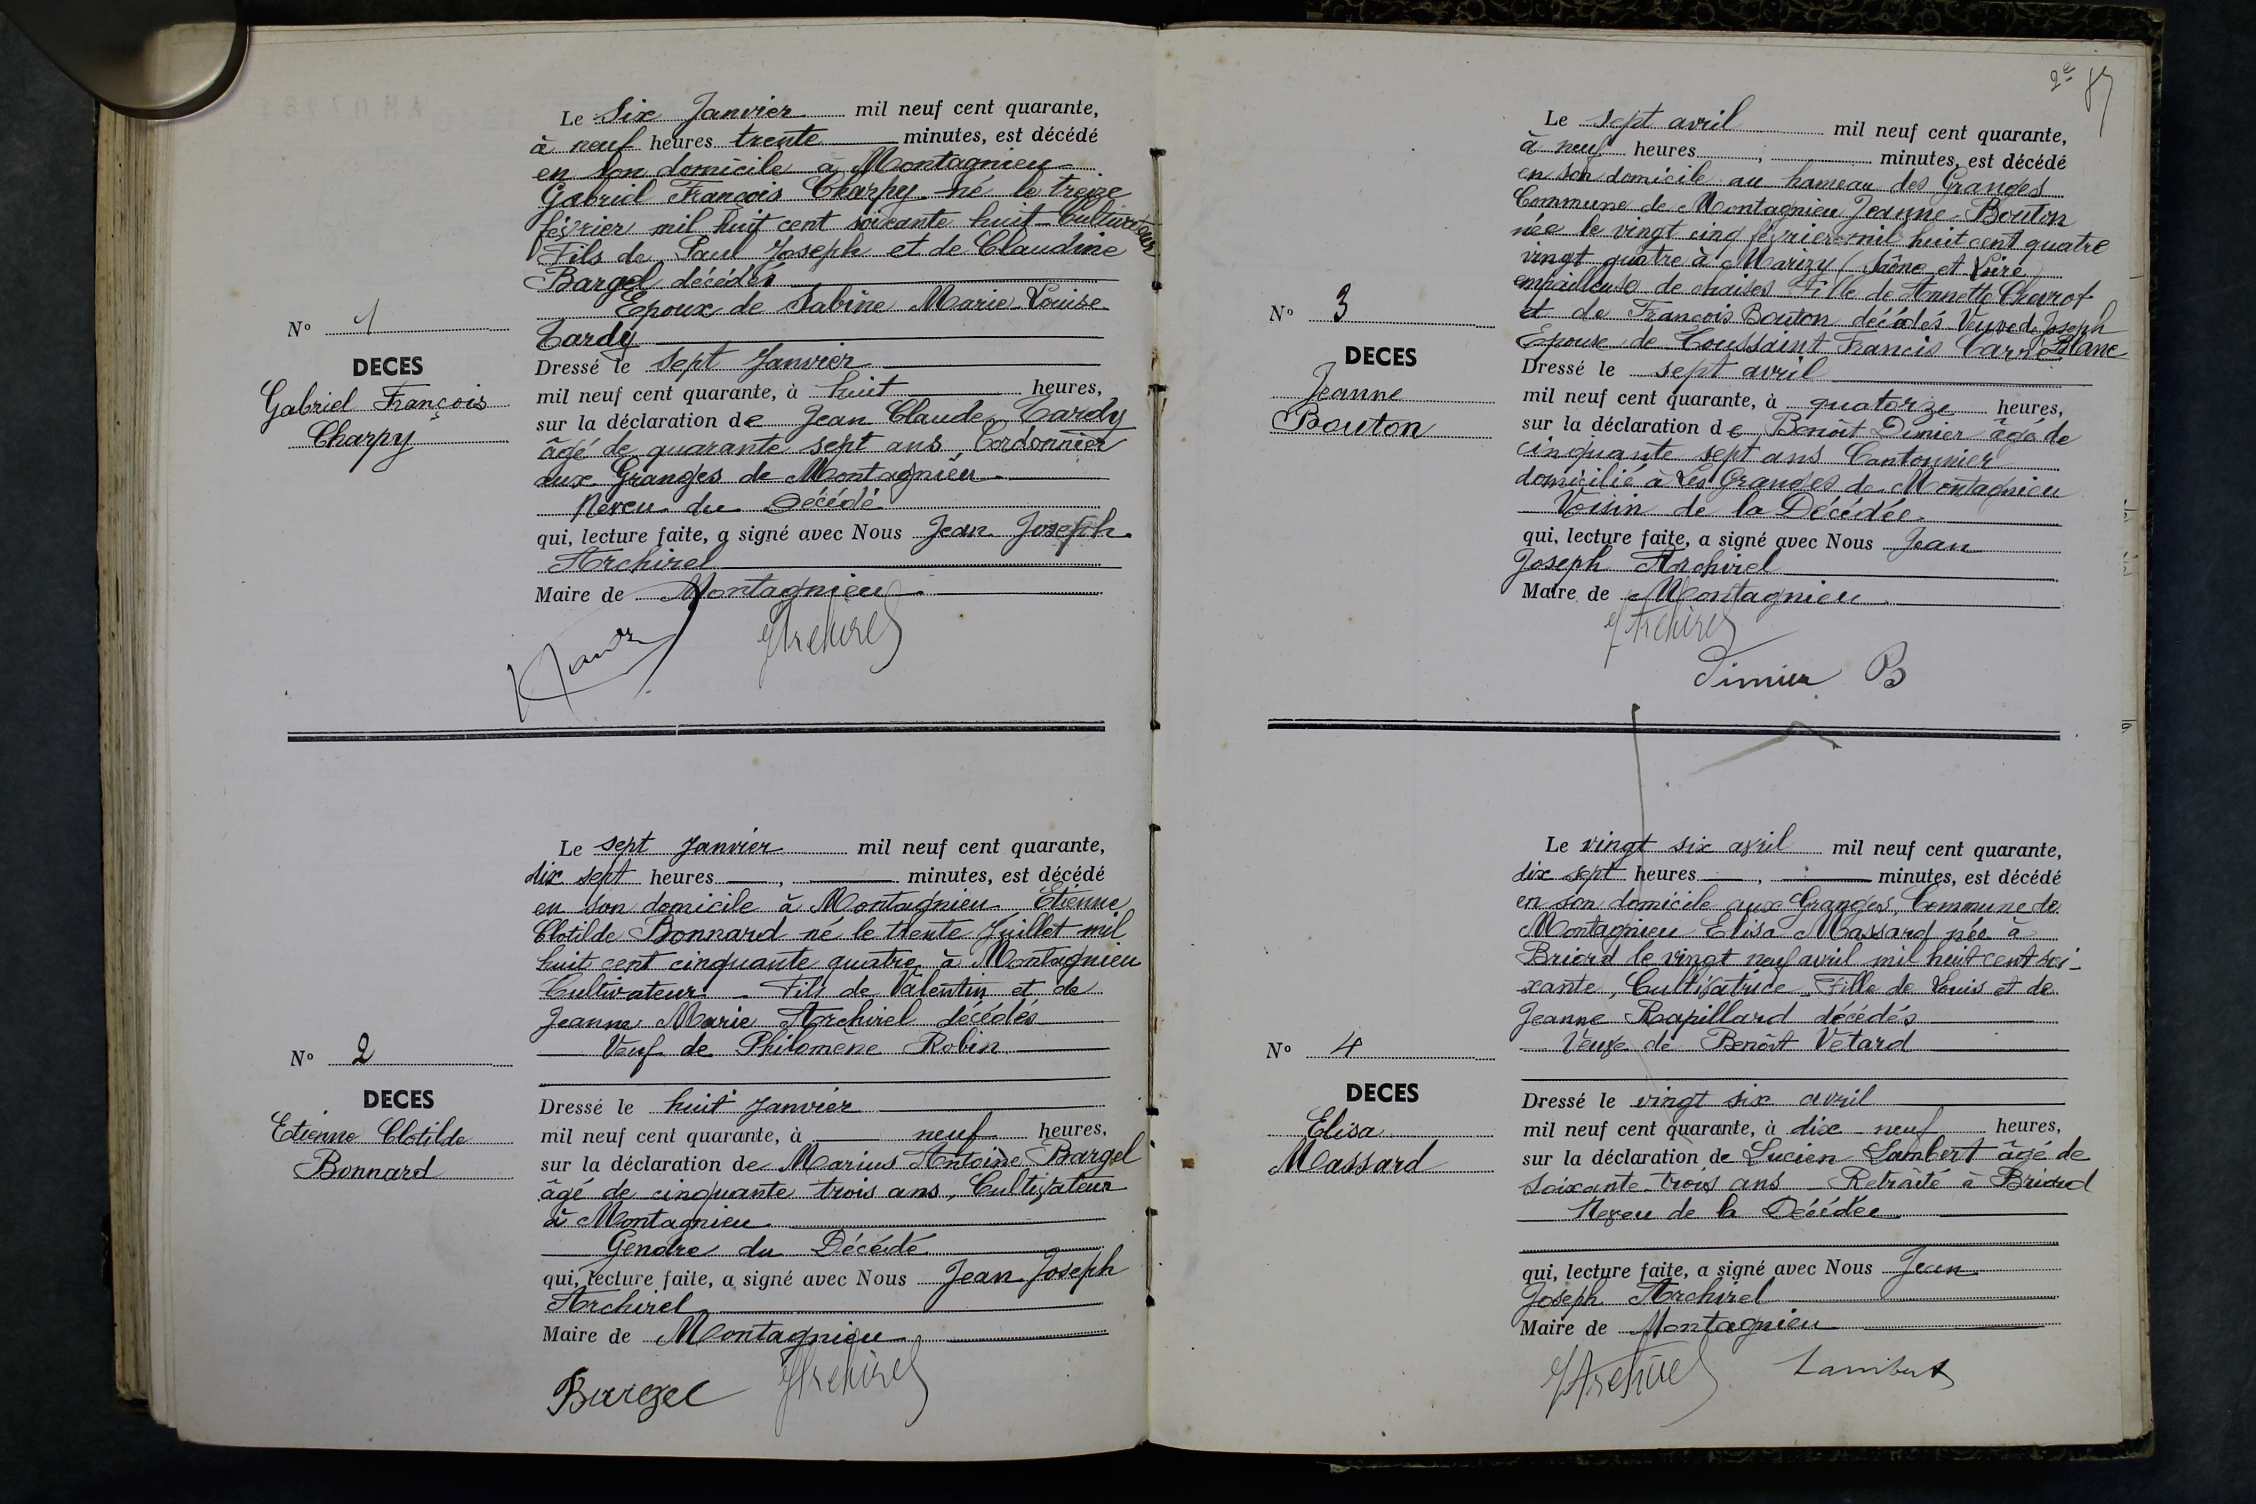 Le six Janvier mil neuf cent quarante,
à neuf heures trente minutes, est décédé
en son domicile à Montagnieu
Gabriel François Charpy né le treize
février mil huit cent soixante huit - Cultivateur
Fils de Paul Joseph et de Claudine
Bargel décédés
Epoux de Sabine Marie Louise
Tardy
N° 1
DECES
Gabriel François
Charpy
Dressé le sept Janvier
mil neuf cent quarante, à huit heures,
sur la déclaration de Jean Claude Tardy
âgé de quarante sept ans, Cordonnier
aux Granges de Montagnieu
Neveu du Décédé
qui, lecture faite, a signé avec Nous Jean Joseph
Archirel
Maire de Montagnieu
JArchirel
Le sept Janvier mil neuf cent quarante,
dix sept heures , minutes, est décédé
en son domicile à Montagnieu Etienne
Clotilde Bonnard né le trente Juillet mil
huit cent cinquante quatre à Montagnieu
Cultivateur - Fils de Valentin et de
Jeanne Marie Archirel décédés
Veuf de Philomène Robin
N° 2
DECES
Etienne Clotilde
Bonnard
Dressé le huit Janvier
mil neuf cent quarante, à neuf heures,
sur la déclaration de Marius Antoine Bargel
âgé de cinquante trois ans, Cultivateur
à Montagnieu
Gendre du Décédé
qui, lecture faite, a signé avec Nous Jean Joseph
Archirel
Maire de Montagnieu
Bargel JArchirel
2e
Le sept avril mil neuf cent quarante,
à neuf heures , minutes, est décédé
en son domicile au hameau des Granges
Commune de Montagnieu Jeanne Bouton
née le vingt cinq février mil huit cent quatre
vingt quatre à Marizy (Saône et Loire)
empailleuse de chaises Fille de Annette Charrot
et de François Bouton décédés Veuve de Joseph
Blanc
Epouse de Toussaint Francis Carré
N° 3
DECES
Jeanne
Bouton
Dressé le sept avril
mil neuf cent quarante, à quatorze heures,
sur la déclaration de Benoît Dimier âgé de
cinquante sept ans Cantonnier
domicilié à Les Granges de Montagnieu
Voisin de la Décédée
qui, lecture faite, a signé avec Nous Jean
Joseph Archirel
Maire de Montagnieu
JArchirel
Dimier B
Le vingt six avril mil neuf cent quarante,
dix sept heures , minutes, est décédé
en son domicile aux Granges, Commune de
Montagnieu Elisa Massard née à
Briord le vingt neuf avril mil huit cent soi-
xante, Cultivatrice - Fille de Louis et de
Jeanne Rapillard décédés
Veuve de Benoît Vétard
N° 4
DECES
Elisa
Massard
Dressé le vingt six avril
mil neuf cent quarante, à dix neuf heures,
sur la déclaration de Lucien Lambert âgé de
soixante-trois ans - Retraité à Briord
Neveu de la Décédée
qui, lecture faite, a signé avec Nous Jean
Joseph Archirel
Maire de Montagnieu
JArchirel Lambert